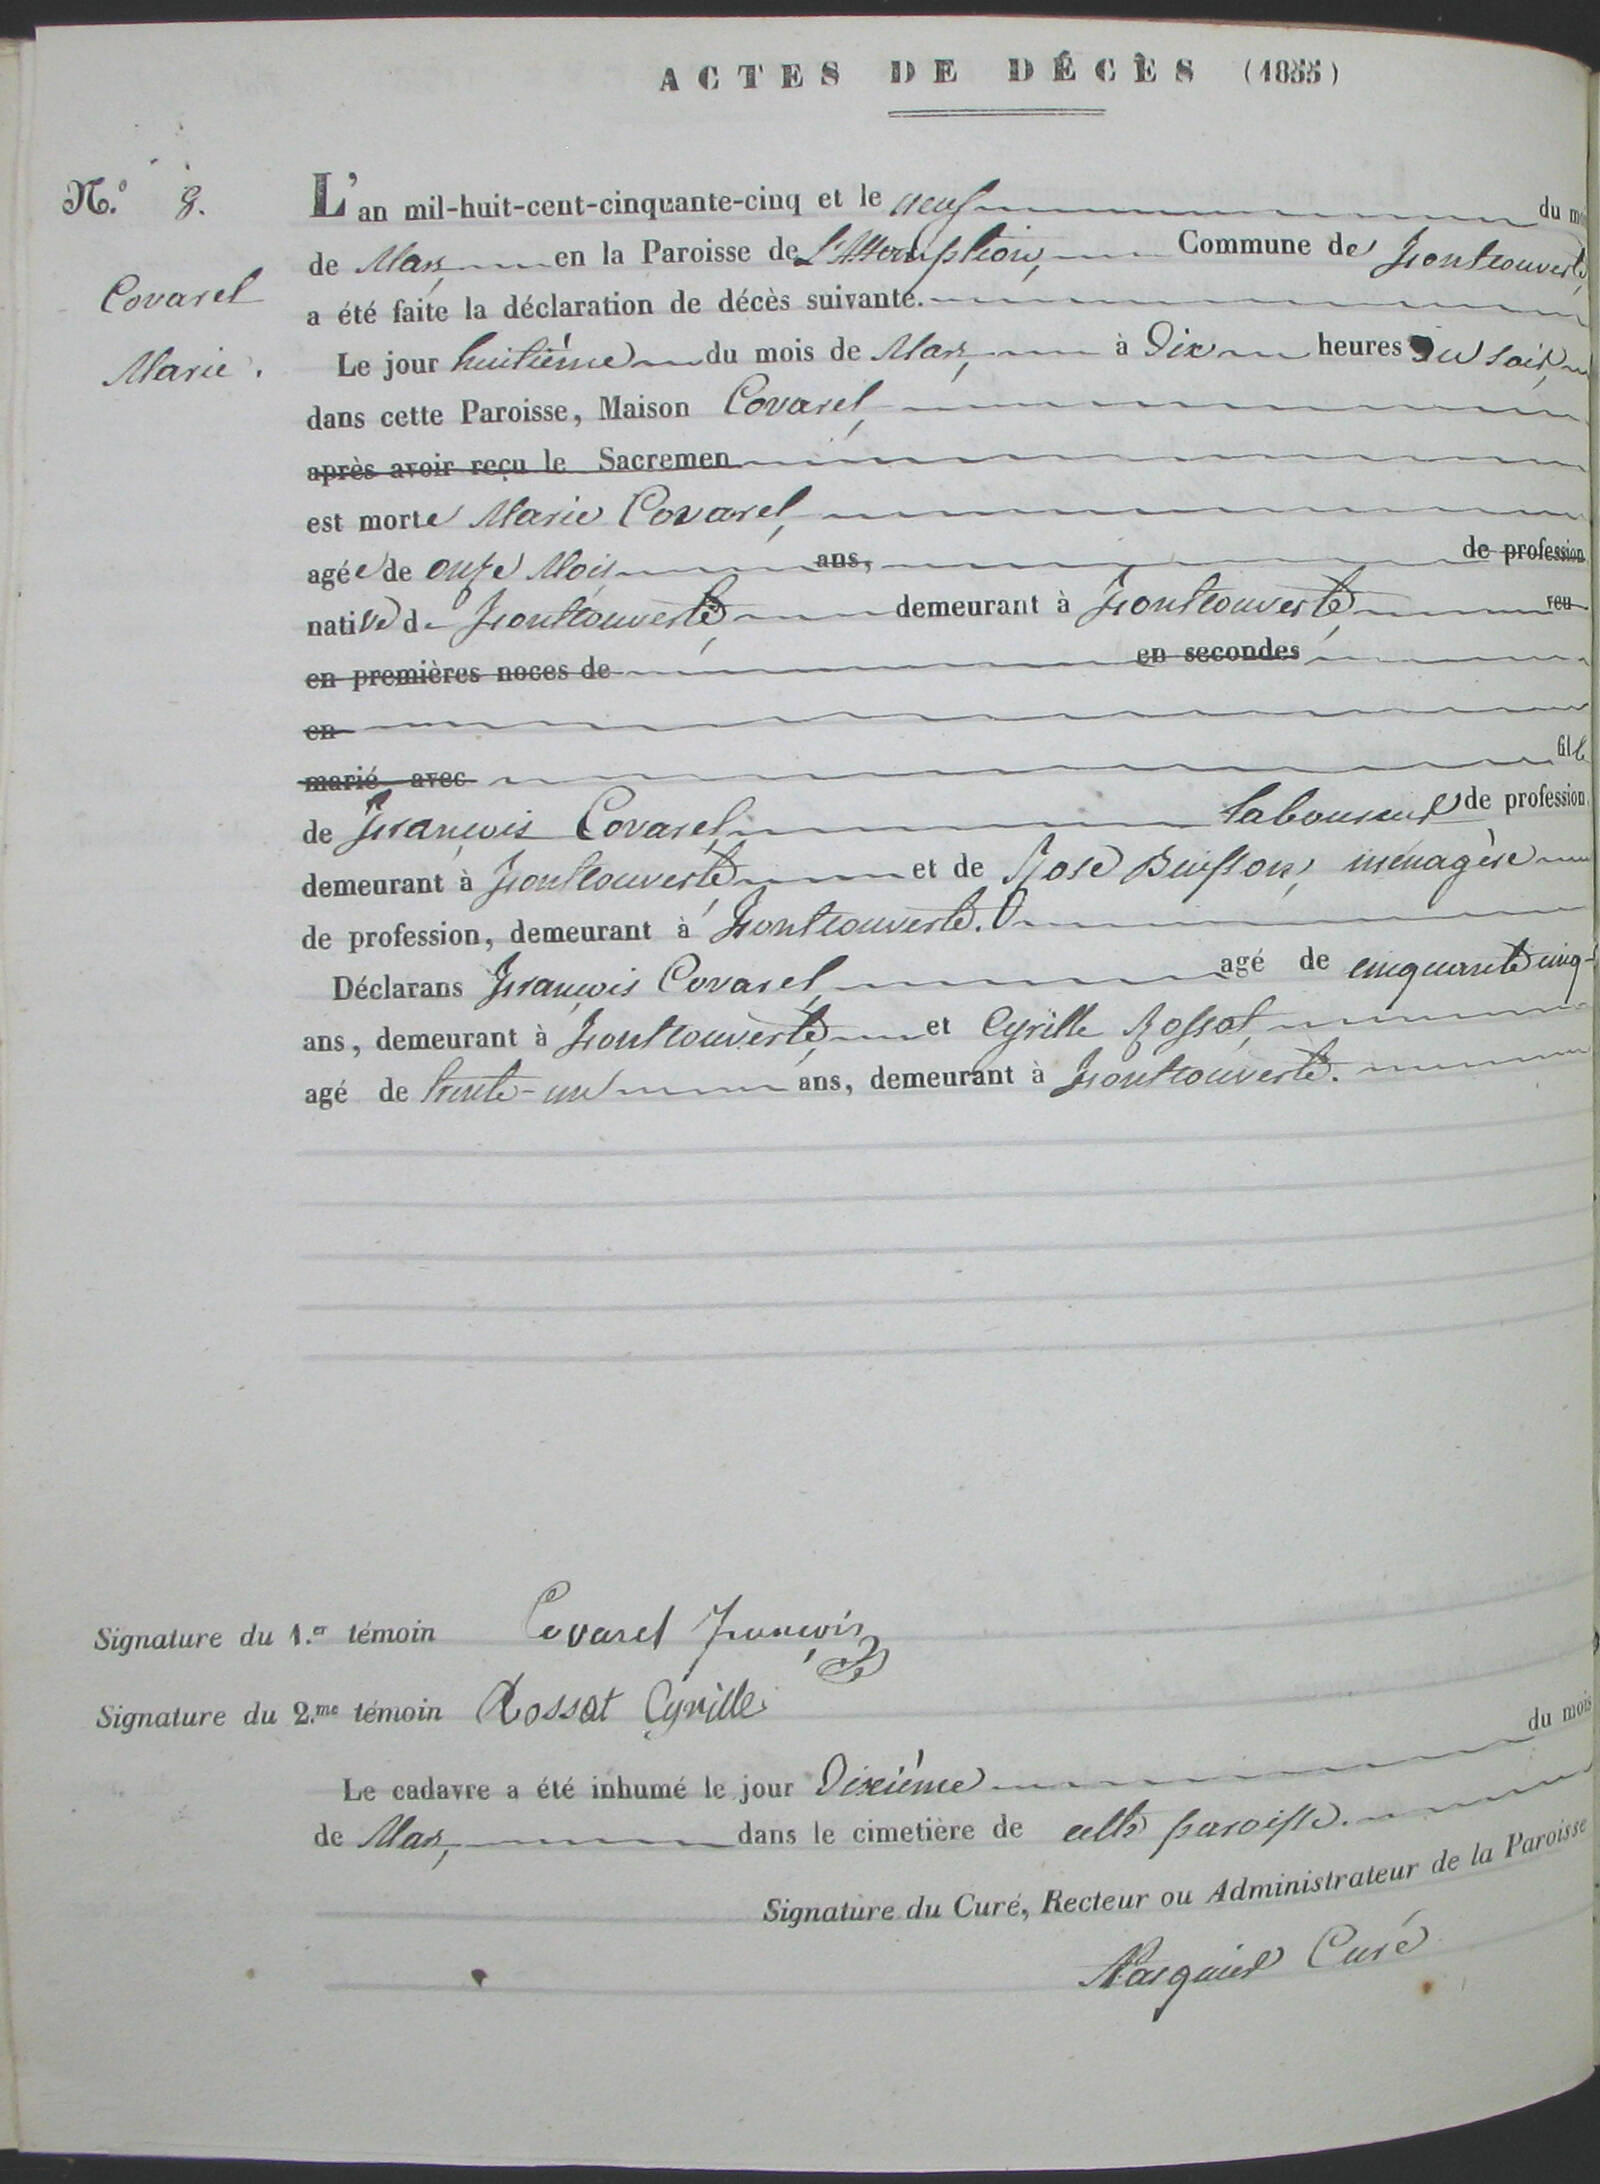 ACTES DE DÉCÈS (1855)
N.º 8.
Covarel
Marie.
L'an mil-huit-cent-cinquante-cinq et le neuf du mois
de Mars, en la Paroisse de L'Assomption, Commune de Fontcouverte,
a été faite la déclaration de décès suivante.
Le jour huitième du mois de Mars, à Dix heures Du soir,
dans cette Paroisse, Maison Covarel,
après avoir reçu le Sacremen
est morte Marie Covarel,
agée de onze Mois ans, de profession
native d- Fontcouverte, demeurant à Fontcouverte, veu
en premières noces de en secondes
en
marié avec fille
de François Covarel, laboureur de profession
demeurant à Fontcouverte et de Rose Buisson, ménagère
de profession, demeurant à Fontcouverte.
Déclarans François Covarel, agé de cinquante cinq
ans, demeurant à Fontcouverte, et Cyrille Rossat,
agé de trente-un ans, demeurant à Fontcouverte.
Signature du 1.er témoin Covarel François
Signature du 2.me témoin Rossat Cyrille
Le cadavre a été inhumé le jour Dixième du mois
de Mars, dans le cimetière de cette paroisse.
Signature du Curé, Recteur ou Administrateur de la Paroisse
Pasquier Curé